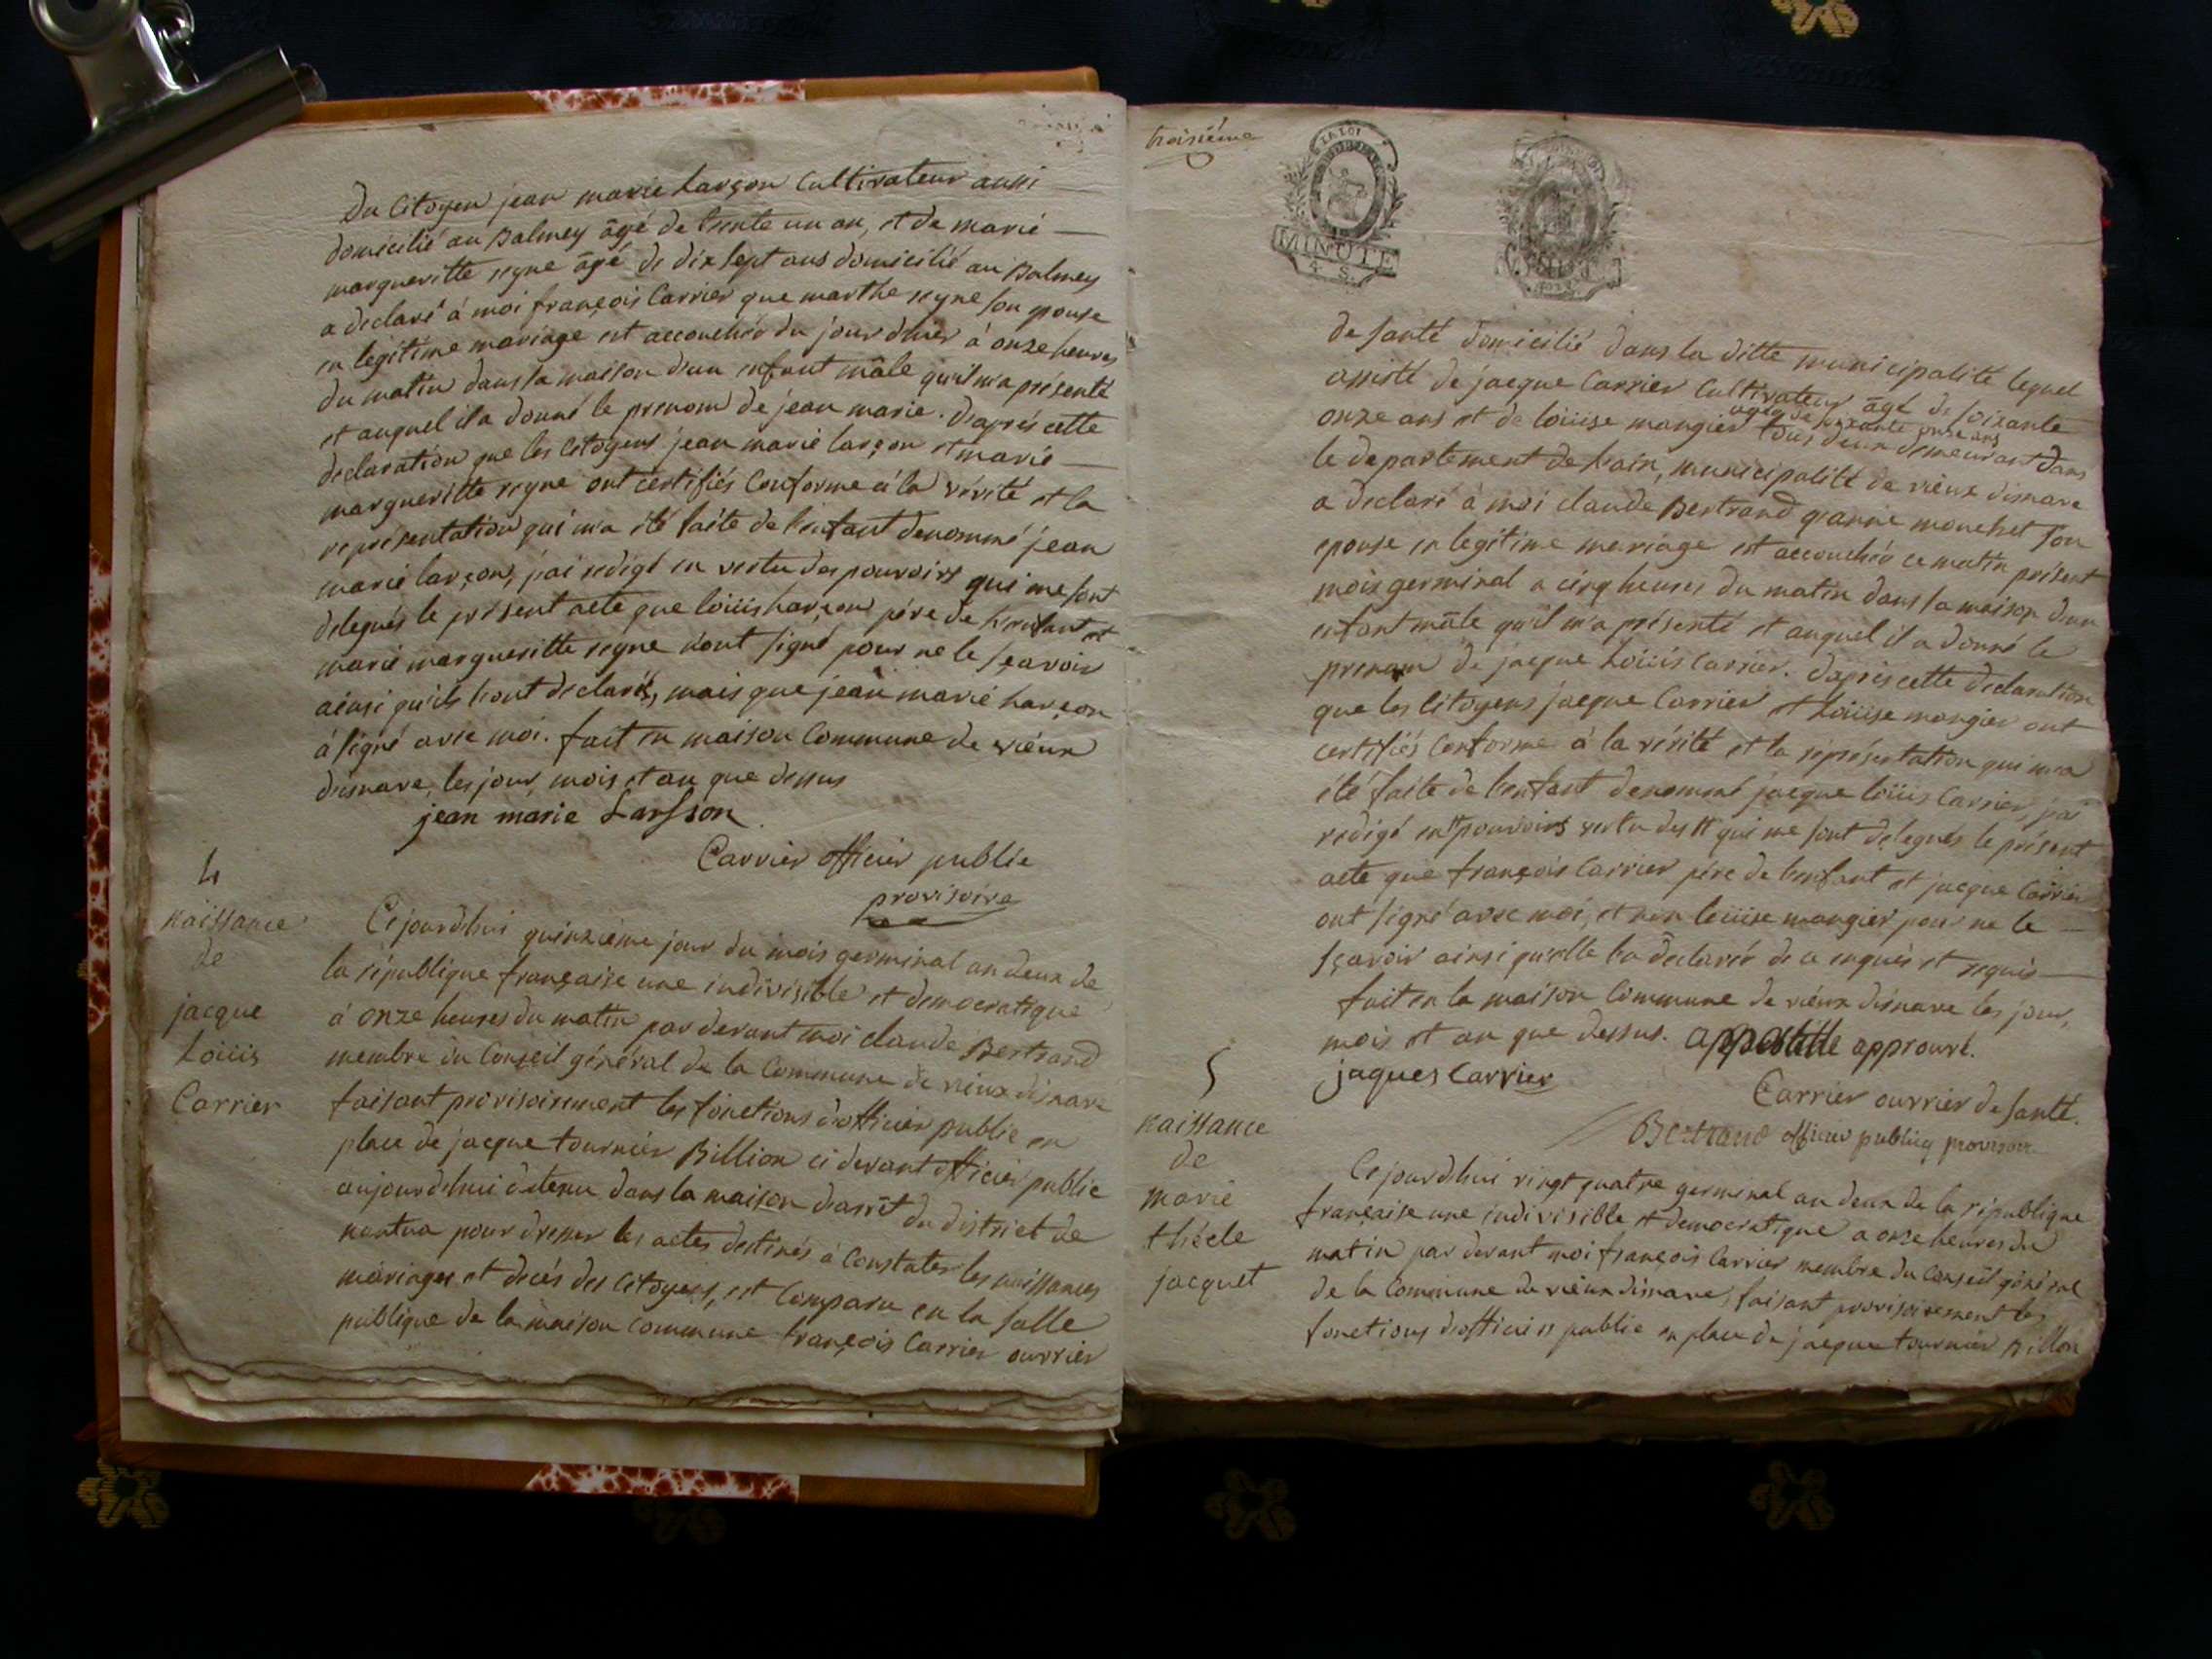 Du Citoyen jean marie Larçon Cultivateur aussi
domicilié au Balmey âgé de trente un an, et de marie
margueritte reyne âgé de dix sept ans domicilié au Balmey
a declaré à moi françois Carrier que marthe reyne son epouse
en legitime mariage est accouchée du jour dhier à onze heures
du matin dans sa maison d'un enfant mâle quil m'a présenté
et auquel il a donné le prenom de jean marie. D'après cette
declaration que les Citoyens jean marie larçon et marie
margueritte reyne ont certifiés conforme à la vérité et la
représentation qui m'a été faite de l'enfant denommé jean
marie larçon, j'ai redigé en vertu des pouvoirs qui me sont
delegués le présent acte que loüis Larçon père de l'enfant et
marie margueritte reyne n'ont signé pour ne le sçavoir
ainsi qu'ils l'ont declarés, mais que jean marie Larçon
à signé avec moi. fait en maison Commune de vieux
disnave, les jour, mois et an que dessus
jean marie Larsson
Carrier officier public
provisoire
4
naissance
de
jacque
Loüis
Carrier
Cejourdhui quinzieme jour du mois germinal an deux de
la république française une indivisible et democratique
à onze heures du matin par devant moi claude Bertrand
membre du Conseil général de la Commune de vieux disnave
faisant provisoirement les fonctions d'officier public en
place de jacque tournier Billion ci devant officier public
aujourdhui detenu dans la maison d'arrêt du district de
nantua pour dresser les actes destinés à Constater les naissances
mariages et decès des Citoyens, est Comparu en la salle
publique de la maison commune françois Carrier ouvrier
troisième
LA LOI
MINUTE
4. S.
de santé domicilié dans la ditte municipalité lequel
assisté de jacque Carrier Cultivateur âgé de soixante
onze ans et de loüise mangier agée de soixante onze ans tous deux demeurant dans
le departement de l'ain, municipalité de vieux disnave
a declaré à moi claude Bertrand q'annie mouchet son
epouse en legitime mariage est accouchée ce matin présent
mois germinal a cinq heures du matin dans sa maison d'un
enfant mâle qu'il m'a présenté et auquel il a donné le
prenom de jacque Loüis Carrier. d'après cette declaration
que les Citoyens jacque Carrier et Loüise mangier ont
certifiés conforme à la vérité et la représentation qui m'a
été faite de l'enfant denommé jacque loüis Carrier, j'ai
redigé en pouvoirs vertu des # qui me sont delegués le présent
acte que françois Carrier père de l'enfant et jacque Carrier
ont signé avec moi, et non loüise mangier pour ne le
sçavoir ainsi qu'elle l'a declarée de ce enquis et requis
fait en la maison Commune de vieux disnave les jour,
mois et an que dessus. appostille approuvé.
jaques Carrier
Carrier ouvrier de santé.
Bertrand officier publicq provisoir
5
naissance
de
marie
thécle
jacquet
Cejourdhui vingt quatre germinal an deux de la république
française une indivisible et democratique a onze heures du
matin par devant moi françois Carrier membre du Conseil général
de la Commune de vieux disnave, faisant provisoirement les
fonctions d'officier public en place de jacque tournier Billion